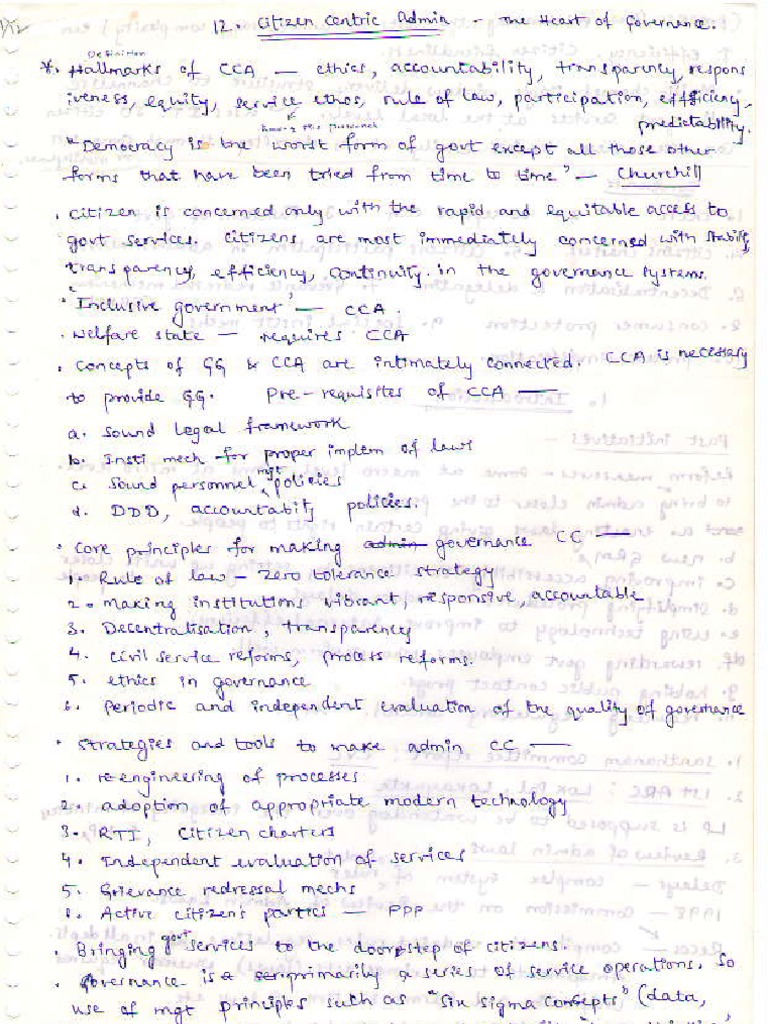 12. Citizen Centric Admin - The Heart of Governance.
Definition
*. Hallmarks of CCA — ethics, accountability, transparency, respons
iveness, equity, service ethos, rule of law, participation, efficiency,
predictability.
"Democracy is the worst form of govt except all those other
forms that have been tried from time to time" — Churchill
. Citizen is concerned only with the rapid and equitable access to
govt services. Citizens are most immediately concerned with stability,
transparency, efficiency, continuity. in the governance systems.
. "Inclusive government" — CCA.
. Welfare state — requires CCA
. Concepts of GG & CCA are intimately connected. CCA is necessary
to provide GG. Pre-requisites of CCA —
a. Sound legal framework
b. Insti mech for proper implem of laws
c. Sound personnel mgt policies
d. DDD, accountability policies.
. Core principles for making admin governance CC —
1. Rule of law - zero tolerance strategy
2. Making institutions vibrant, responsive, accountable
3. Decentralisation, transparency
4. Civil service reforms, process reforms.
5. ethics in governance
6. Periodic and independent evaluation of the quality of governance
. Strategies and tools to make admin CC —
1. re-engineering of processes
2. adoption of appropriate modern technology
3. RTI, Citizen charters
4. Independent evaluation of services
5. Grievance redressal mechs
6. Active citizen's partici — PPP
. Bringing govt services to the doorstep of citizens.
. Governance is primarily a series of service operations. So
use of mgt principles such as "Six sigma concepts" (data,